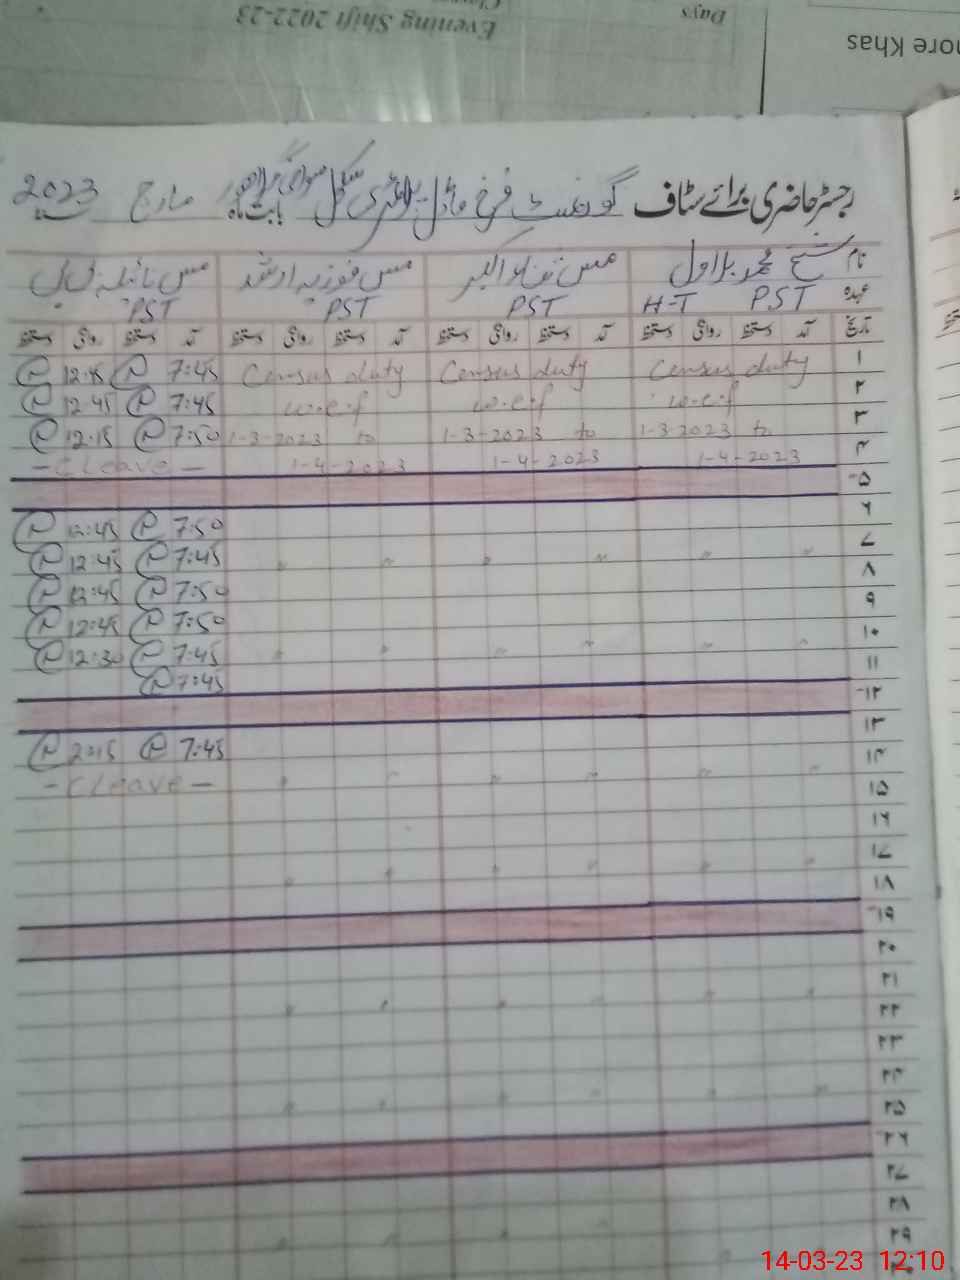 Evening Shift 2022-23
Days
ore Khas
رجسٹر حاضری برائے سٹاف گورنمنٹ فرخ ماڈل پرائمری سکول بابت ماہ مارچ 2023
نام شیخ محمد بلاول مس ثناء اکبر مس فوزیہ ارشد مس نائلہ بی بی
عہدہ PST H-T PST PST PST
تاریخ آمد دستخط روانگی دستخط آمد دستخط روانگی دستخط آمد دستخط روانگی دستخط آمد دستخط روانگی دستخط
۱ Census duty Census duty Census duty 7:45 12:45
۲ w.e.f w.e.f w.e.f 7:45 12:45
۳ 1-3-2023 to 1-3-2023 to 1-3-2023 to 7:50 12:15
۴ 1-4-2023 1-4-2023 1-4-2023 - C Leave -
۵
۶ 7:50 12:45
۷ 7:45 12:45
۸ 7:50 12:45
۹ 7:50 12:45
۱۰ 7:45 12:30
۱۱ 7:45
۱۲
۱۳ 7:45 2:15
۱۴ - C Leave -
۱۵
۱۶
۱۷
۱۸
۱۹
۲۰
۲۱
۲۲
۲۳
۲۴
۲۵
۲۶
۲۷
۲۸
۲۹
14-03-23 12:10